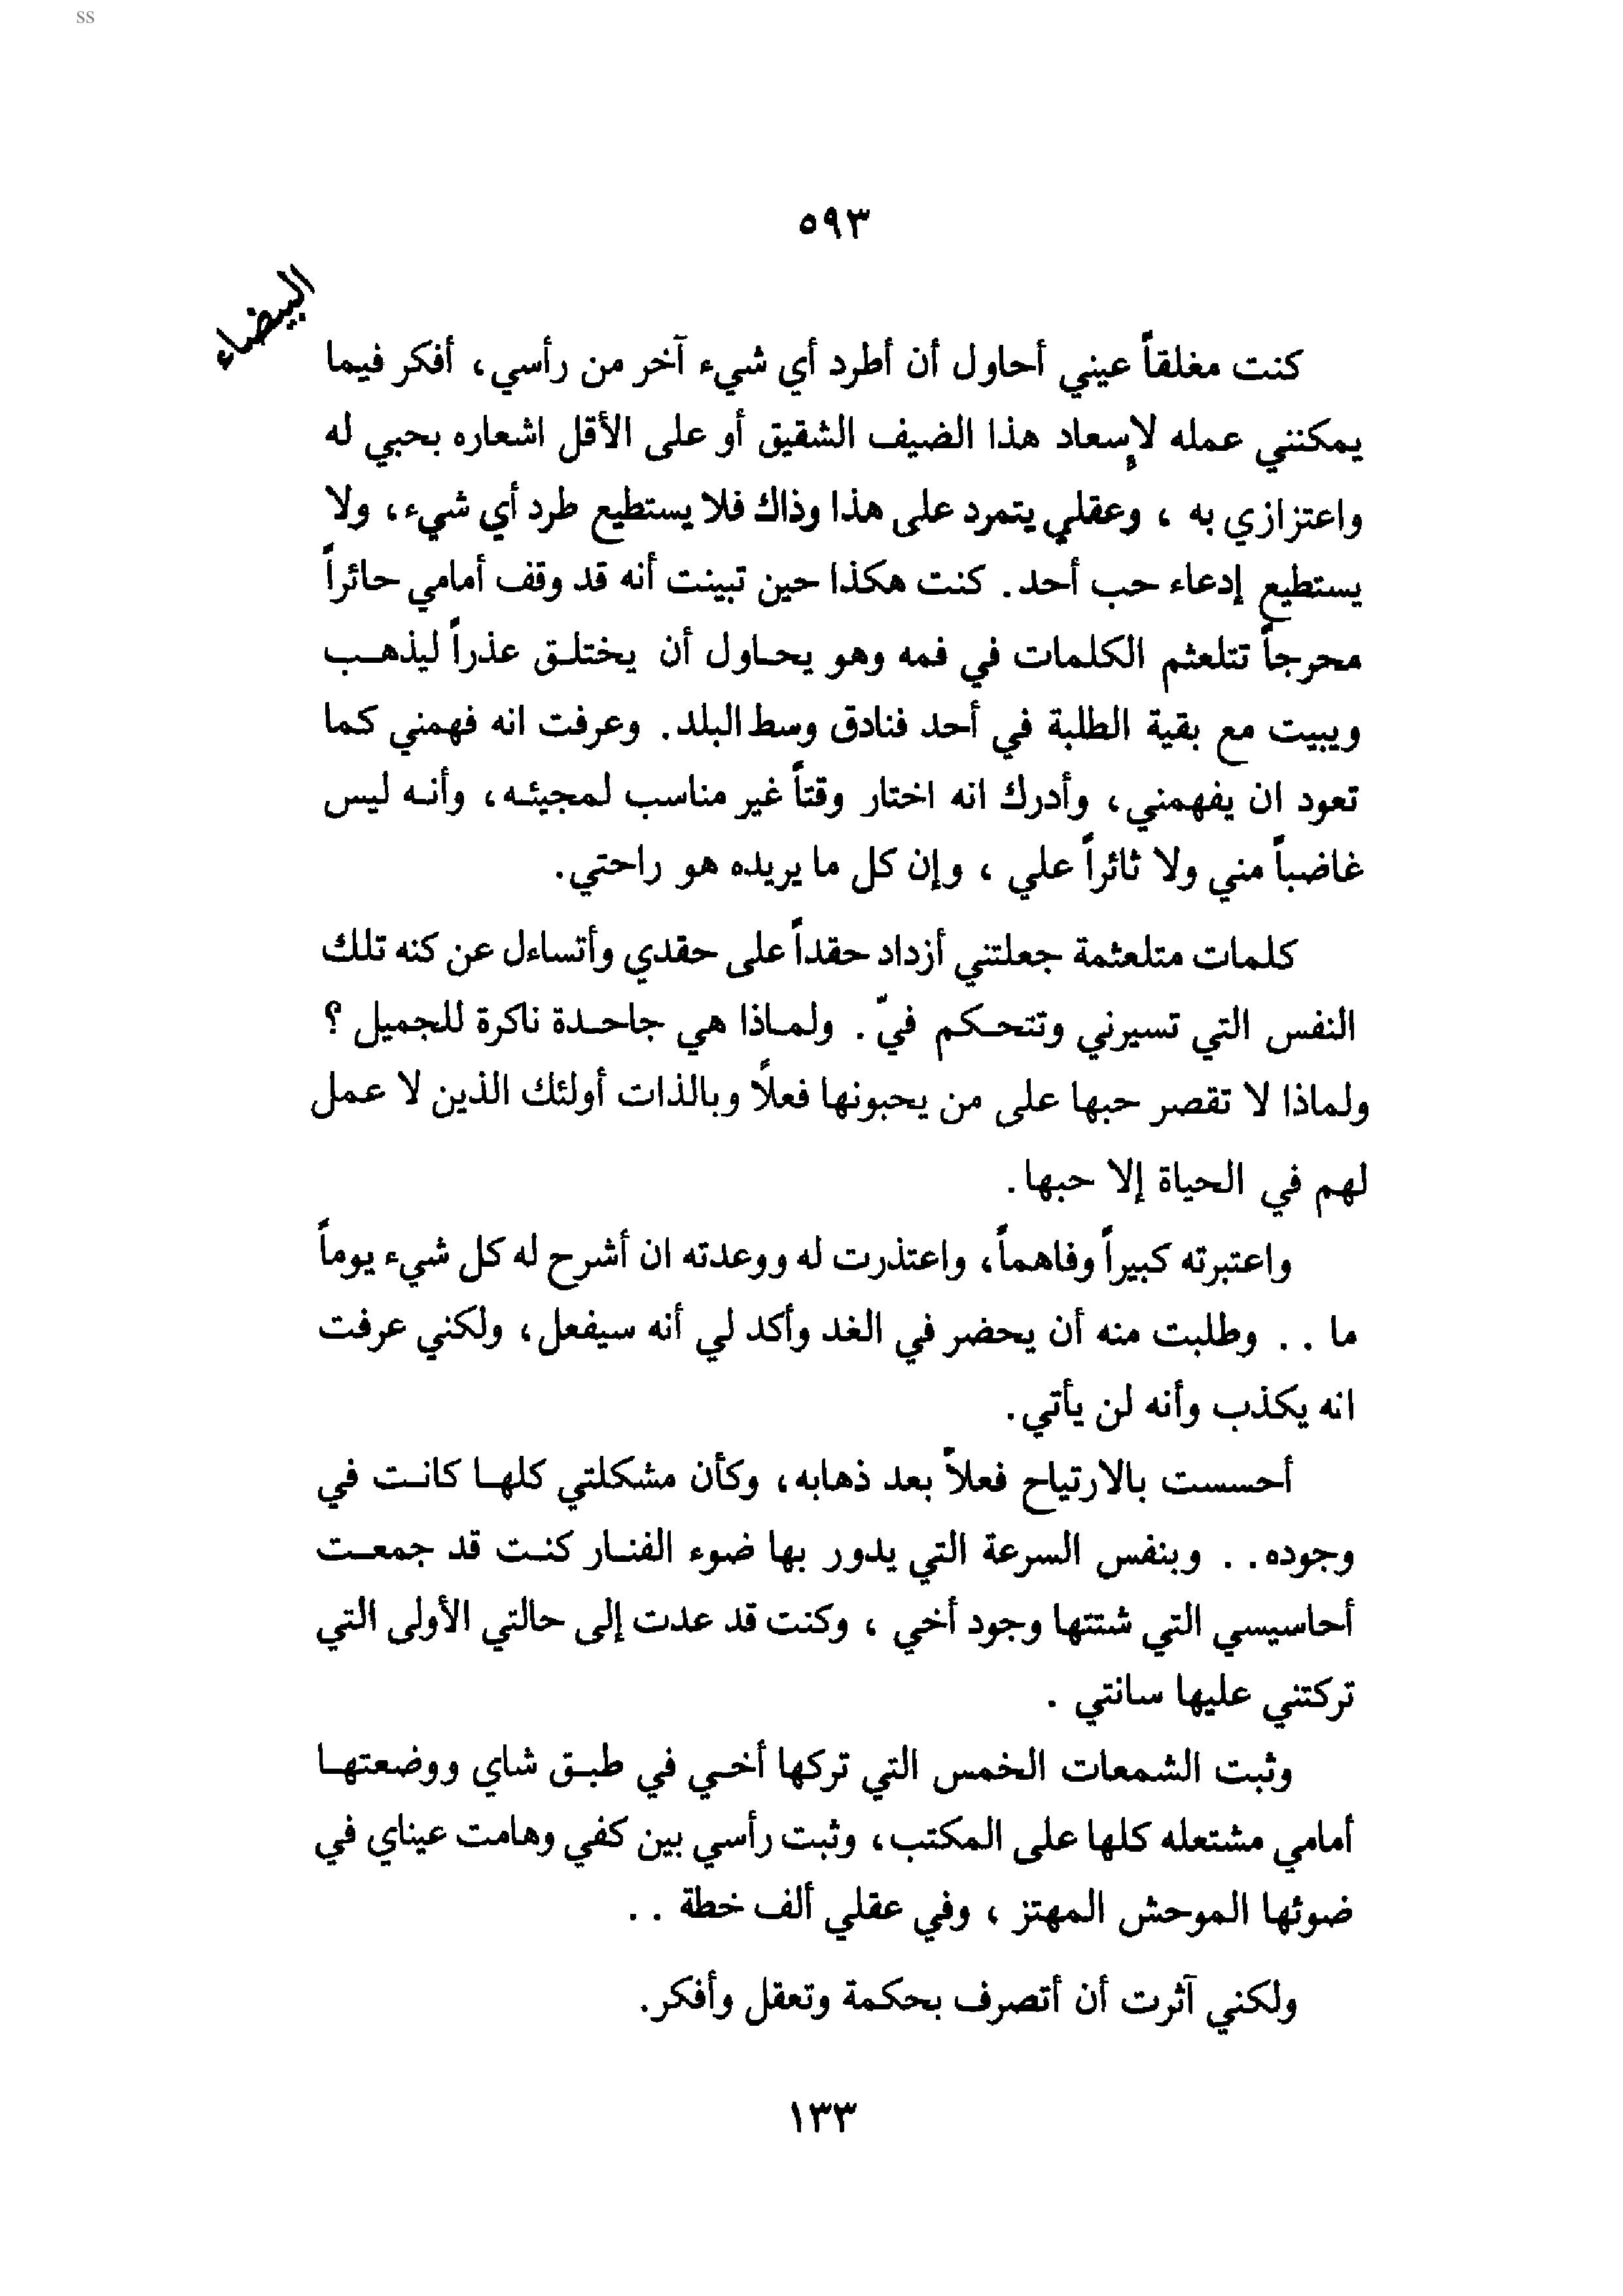 ss
٥٩٣
البيضاء
كنت مغلقاً عيني أحاول أن أطرد أي شيء آخر من رأسي، أفكر فيما
يمكنني عمله لإسعاد هذا الضيف الشقيق أو على الأقل اشعاره بحبي له
واعتزازي به ، وعقلي يتمرد على هذا وذاك فلا يستطيع طرد أي شيء، ولا
يستطيع إدعاء حب أحد. كنت هكذا حين تبينت أنه قد وقف أمامي حائراً
محرجاً تتلعثم الكلمات في فمه وهو يحاول أن يختلق عذراً ليذهب
ويبيت مع بقية الطلبة في أحد فنادق وسط البلد. وعرفت انه فهمني كما
تعود ان يفهمني، وأدرك انه اختار وقتاً غير مناسب لمجيئه، وأنه ليس
غاضباً مني ولا ثائراً علي ، وإن كل ما يريده هو راحتي.
كلمات متلعثمة جعلتني أزداد حقداً على حقدي وأتساءل عن كنه تلك
النفس التي تسيرني وتتحكم فيّ. ولماذا هي جاحدة ناكرة للجميل ؟
ولماذا لا تقصر حبها على من يحبونها فعلاً وبالذات أولئك الذين لا عمل
لهم في الحياة إلا حبها.
واعتبرته كبيراً وفاهماً، واعتذرت له ووعدته ان أشرح له كل شيء يوماً
ما . . وطلبت منه أن يحضر في الغد وأكد لي أنه سيفعل، ولكني عرفت
انه يكذب وأنه لن يأتي.
أحسست بالارتياح فعلاً بعد ذهابه، وكأن مشكلتي كلها كانت في
وجوده. . وبنفس السرعة التي يدور بها ضوء الفنار كنت قد جمعت
أحاسيسي التي شتتها وجود أخي ، وكنت قد عدت إلى حالتي الأولى التي
تركتني عليها سانتي .
وثبت الشمعات الخمس التي تركها أخي في طبق شاي ووضعتها
أمامي مشتعله كلها على المكتب، وثبت رأسي بين كفي وهامت عيناي في
ضوئها الموحش المهتز ، وفي عقلي ألف خطة . .
ولكني آثرت أن أتصرف بحكمة وتعقل وأفكر.
١٣٣